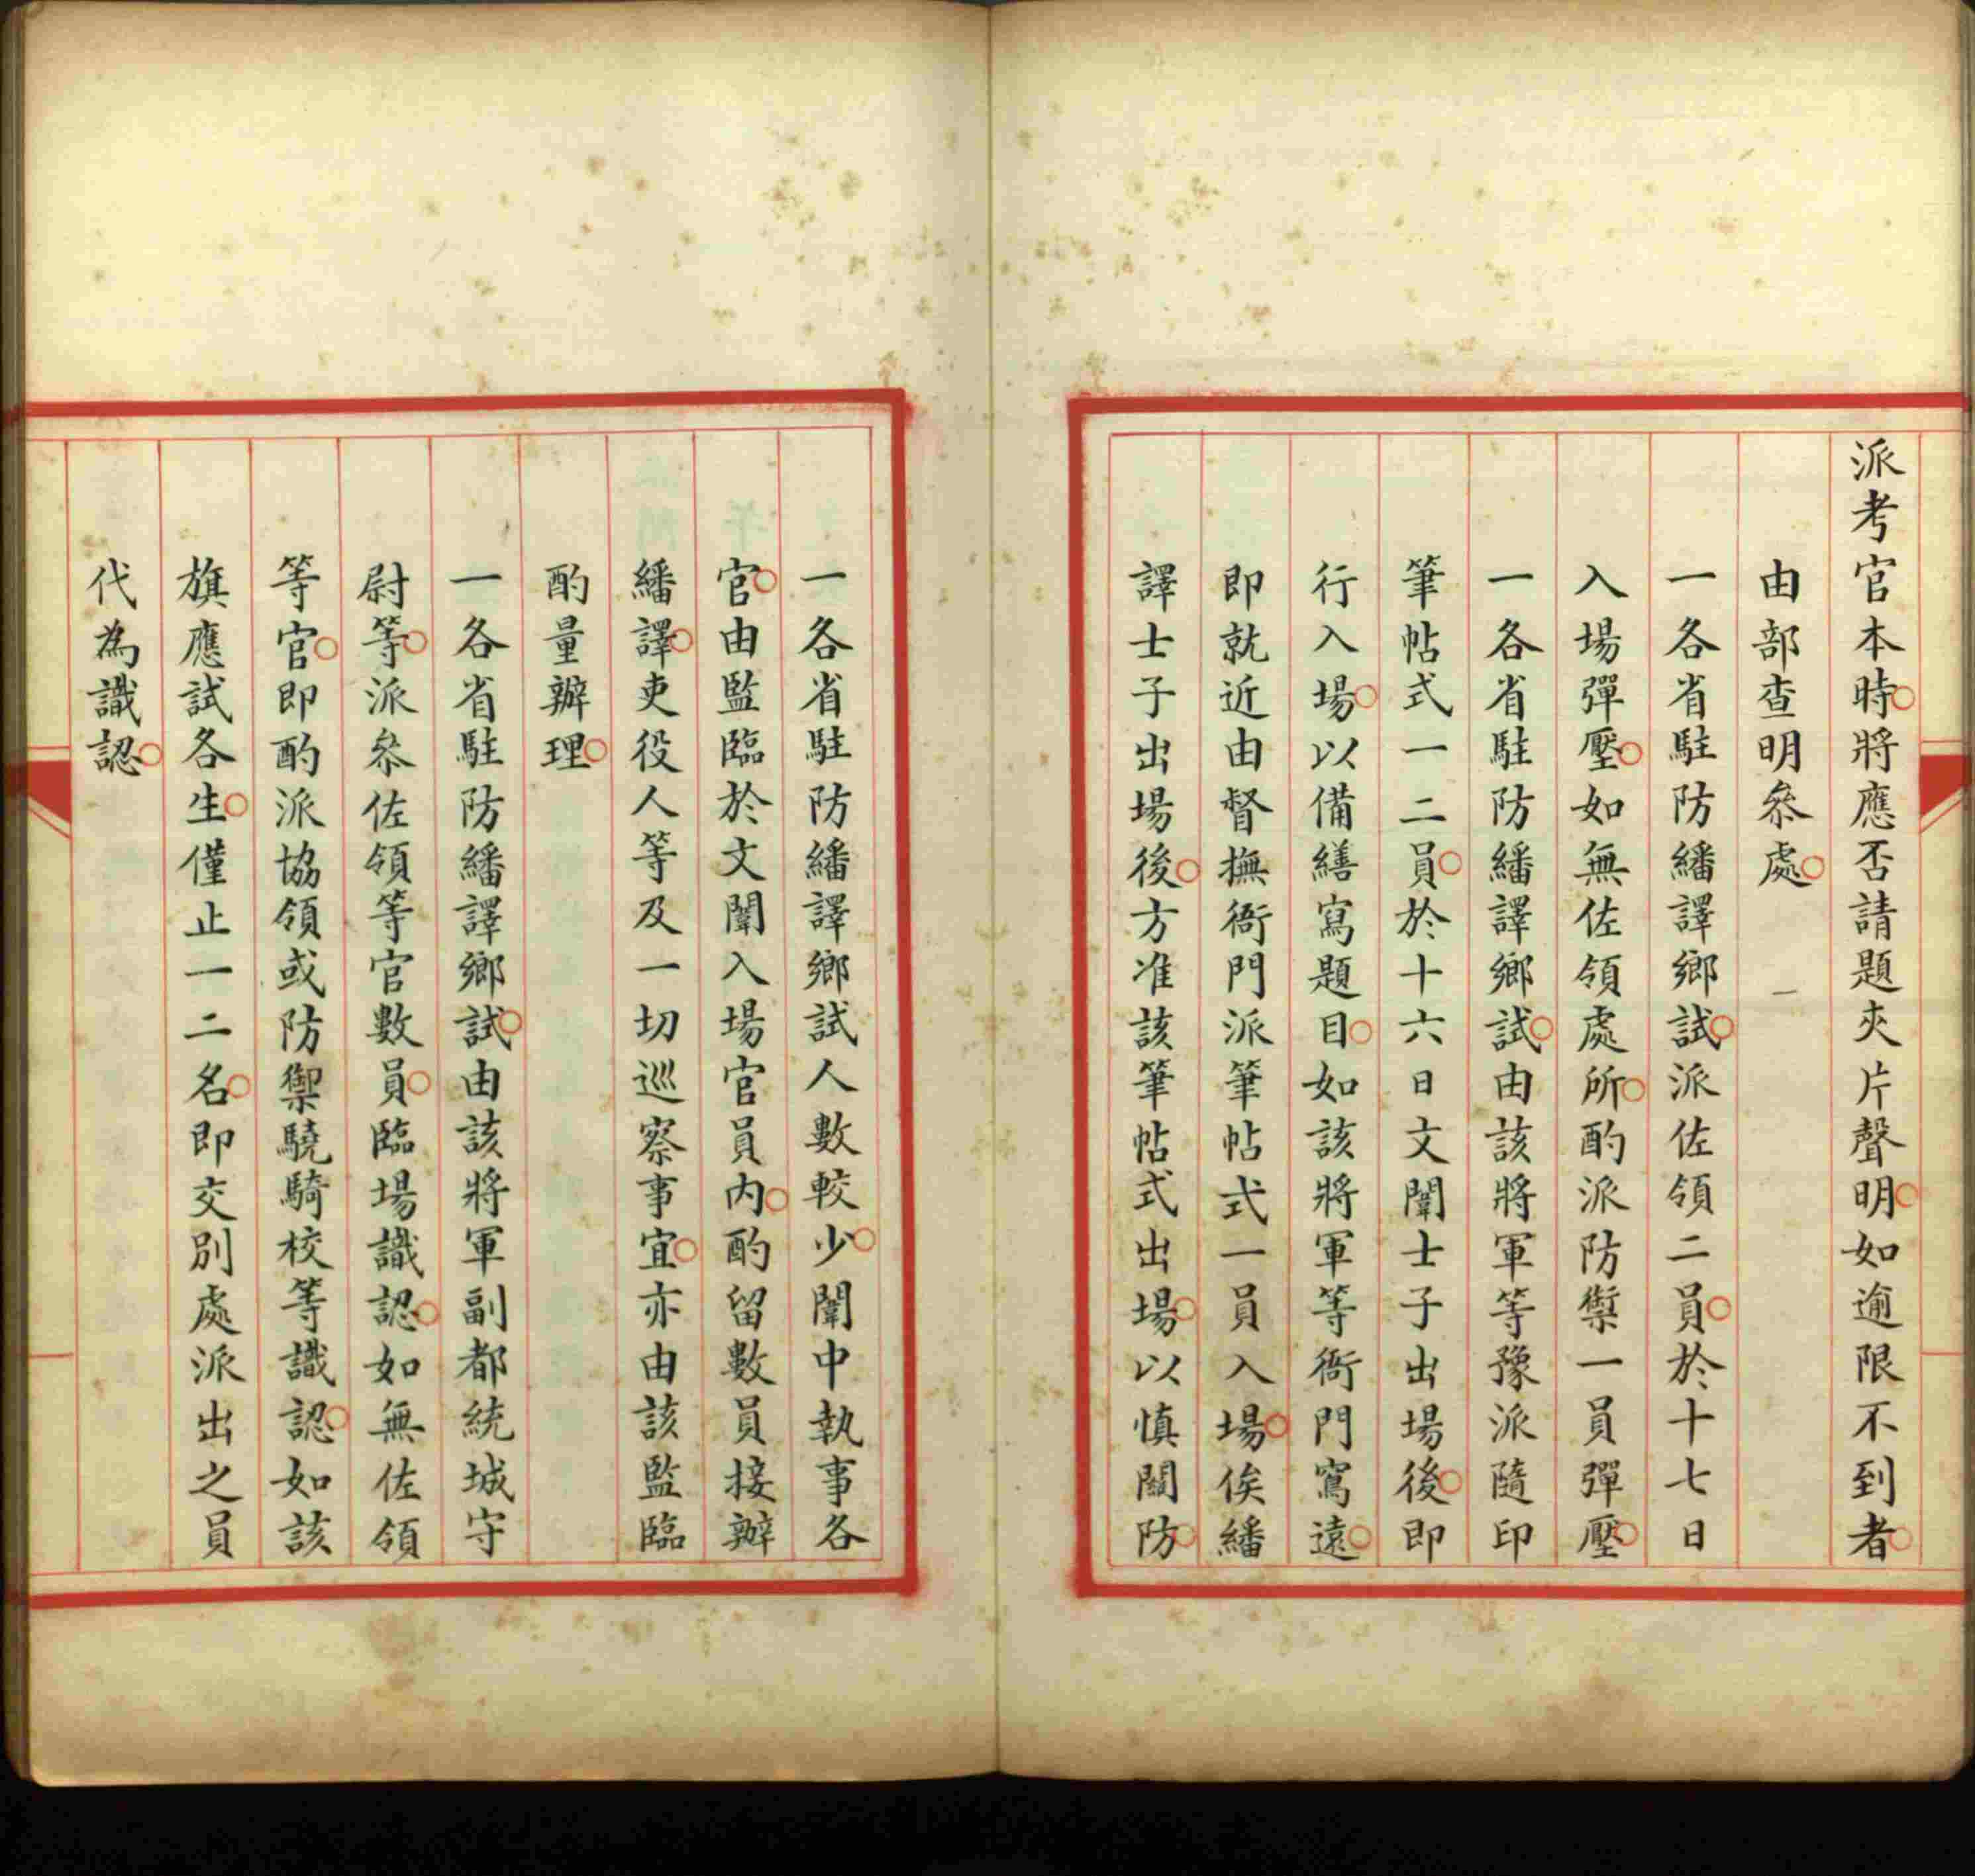 派考官本時將應否請題夾片聲明如逾限不到者
由部查明叅處
一各省駐防繙譯鄉試派佐領二員於十七日
入場彈壓如無佐領處所酌派防禦一員彈壓
一各省駐防繙譯鄉試由該將軍等豫派隨印
筆帖式一二員於十六日文闈士子出場後即
行入場以備繕寫題目如該將軍等衙門寫遠
即就近由督撫衙門派筆帖式一員入場俟繙
譯士子出場後方准該筆帖式出場以慎關防
一各省駐防繙譯鄉試人數較少闈中執事各
官由監臨於文闈入場官員內酌留數員接辦
繙譯吏役人等及一切巡察事宜亦由該監臨
酌量辦理
一各省駐防繙譯鄉試由該將軍副都統城守
尉等派叅佐領等官數員臨場識認如無佐領
等官即酌派協領或防禦驍騎校等識認如該
旗應試各生僅止一二名即交別處派出之員
代為識認